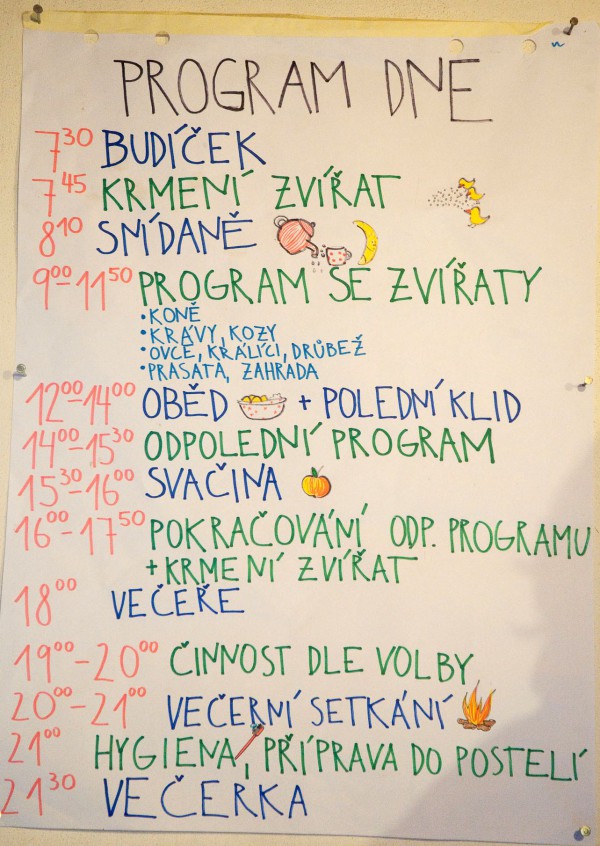 PROGRAM DNE
7 30 BUDÍČEK
7 45 KRMENÍ ZVÍŘAT
8 10 SNÍDANĚ
9 00 - 11 50 PROGRAM SE ZVÍŘATY
• KONĚ
• KRÁVY, KOZY
• OVCE, KRÁLÍCI, DRŮBEŽ
• PRASATA, ZAHRADA
12 00 - 14 00 OBĚD + POLEDNÍ KLID
14 00 - 15 30 ODPOLEDNÍ PROGRAM
15 30 - 16 00 SVAČINA
16 00 - 17 50 POKRAČOVÁNÍ ODP. PROGRAMU
+ KRMENÍ ZVÍŘAT
18 00 VEČEŘE
19 00 - 20 00 ČINNOST DLE VOLBY
20 00 - 21 00 VEČERNÍ SETKÁNÍ
21 00 HYGIENA, PŘÍPRAVA DO POSTELÍ
21 30 VEČERKA